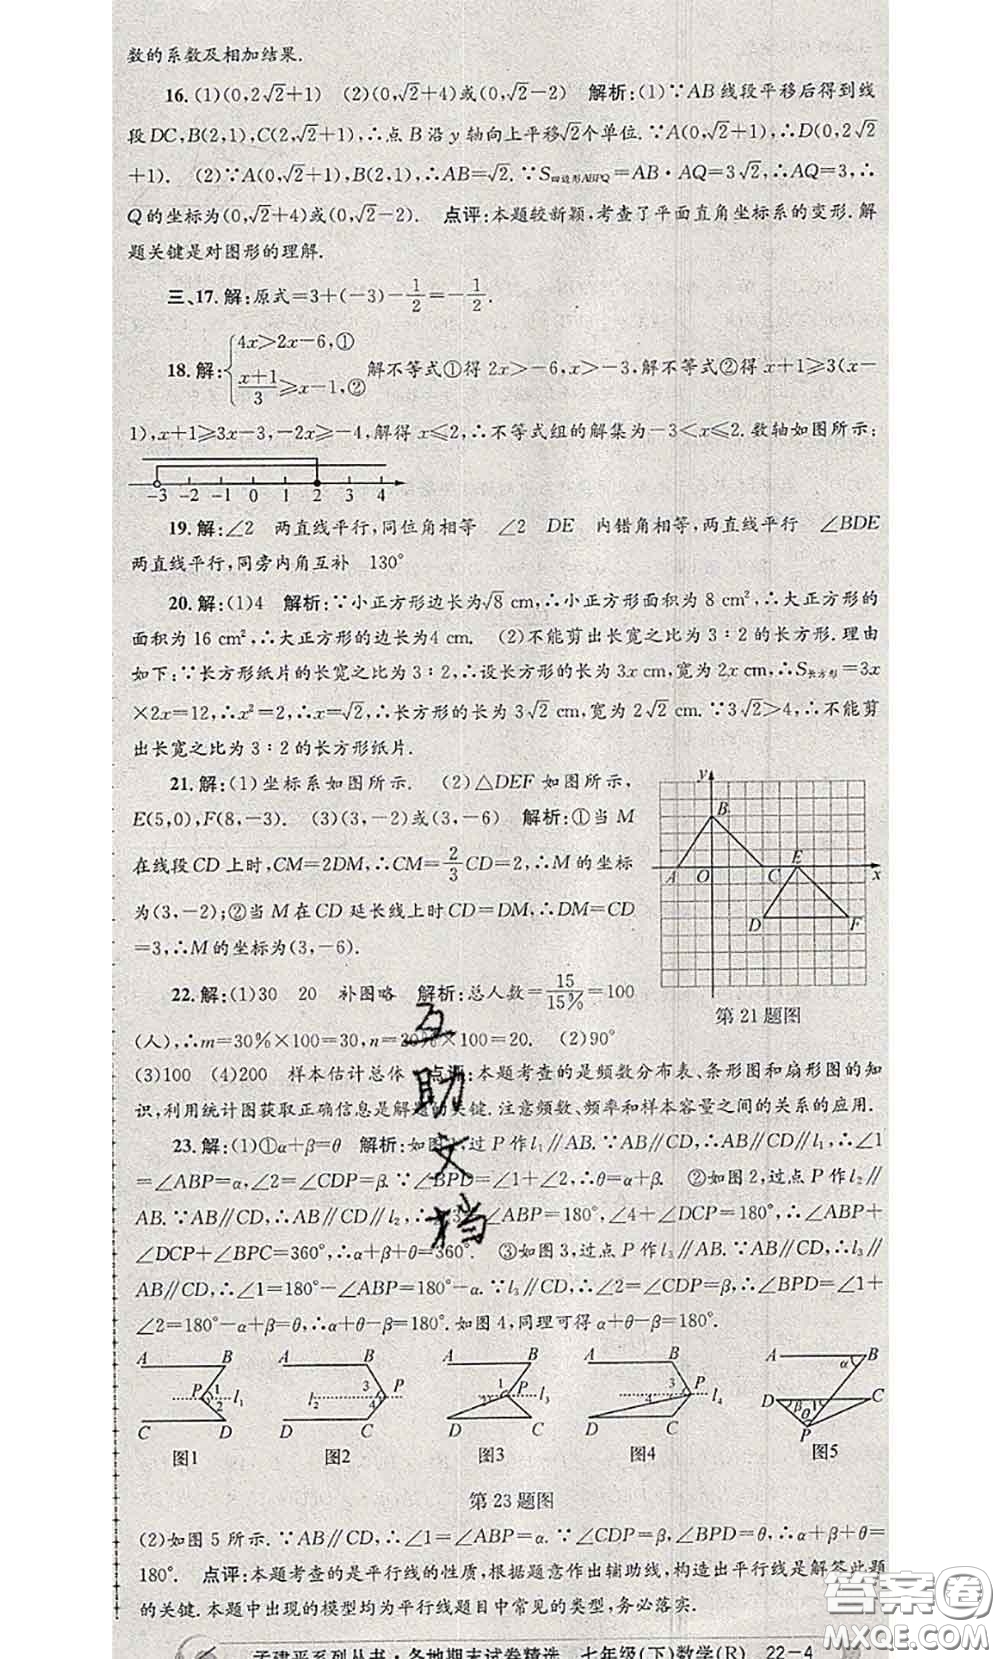 数的系数及相加结果.
16.(1)(0,2√2+1) (2)(0,√2+4)或(0,√2-2) 解析:(1)∵AB线段平移后得到线
段DC,B(2,1),C(2,√2+1),∴点B沿y轴向上平移√2个单位.∵A(0,√2+1),∴D(0,2√2
+1). (2)∵A(0,√2+1),B(2,1),∴AB=√2.∵S四边形ABPQ=AB·AQ=3√2,∴AQ=3,∴
Q的坐标为(0,√2+4)或(0,√2-2). 点评:本题较新颖,考查了平面直角坐标系的变形.解
题关键是对图形的理解.
三、17.解:原式=3+(-3)-1/2=-1/2.
18.解:{4x>2x-6,① (x+1)/3≥x-1,② 解不等式①得2x>-6,x>-3,解不等式②得x+1≥3(x-
1),x+1≥3x-3,-2x≥-4,解得x≤2,∴不等式组的解集为-3<x≤2.数轴如图所示:
-3 -2 -1 0 1 2 3 4
19.解:∠2 两直线平行,同位角相等 ∠2 DE 内错角相等,两直线平行 ∠BDE
两直线平行,同旁内角互补 130°
20.解:(1)4 解析:∵小正方形边长为√8 cm,∴小正方形面积为8 cm²,∴大正方形的
面积为16 cm²,∴大正方形的边长为4 cm. (2)不能剪出长宽之比为3∶2的长方形.理由
如下:∵长方形纸片的长宽之比为3∶2,∴设长方形的长为3x cm,宽为2x cm,∴S长方形=3x
×2x=12,∴x²=2,∴x=√2,∴长方形的长为3√2 cm,宽为2√2 cm.∵3√2>4,∴不能剪
出长宽之比为3∶2的长方形纸片.
21.解:(1)坐标系如图所示. (2)△DEF如图所示,
E(5,0),F(8,-3). (3)(3,-2)或(3,-6) 解析:①当M
在线段CD上时,CM=2DM,∴CM=2/3CD=2,∴M的坐标
为(3,-2);②当M在CD延长线上时CD=DM,∴DM=CD
=3,∴M的坐标为(3,-6).
y
B
A O C E x
D F
第21题图
22.解:(1)30 20 补图略 解析:总人数=15/15%=100
(人),∴m=30%×100=30,n=20%×100=20. (2)90°
(3)100 (4)200 样本估计总体 点评:本题考查的是频数分布表、条形图和扇形图的知
识,利用统计图获取正确信息是解题的关键.注意频数、频率和样本容量之间的关系的应用.
23.解:(1)①α+β=θ 解析:如图1,过P作l₁∥AB.∵AB∥CD,∴AB∥CD∥l₁,∴∠1
=∠ABP=α,∠2=∠CDP=β.∵∠BPD=∠1+∠2,∴θ=α+β. ②如图2,过点P作l₂∥
AB.∵AB∥CD,∴AB∥CD∥l₂,∴∠3+∠ABP=180°,∠4+∠CDP=180°,∴∠ABP+
∠DCP+∠BPC=360°,∴α+β+θ=360°. ③如图3,过点P作l₃∥AB.∵AB∥CD,∴l₃∥
AB∥CD,∴∠1=180°-∠ABP=180°-α.∵l₃∥CD,∴∠2=∠CDP=β,∴∠BPD=∠1+
∠2=180°-α+β=θ,∴α+θ-β=180°.如图4,同理可得α+θ-β=180°.
A B P 1 2 l₁ C D 图1
A B l₂ 3 4 P C D 图2
A B 1 2 P l₃ D C 图3
A B 3 4 P l₄ D C 图4
A α B D β 1 C θ P 图5
第23题图
(2)如图5所示.∵AB∥CD,∴∠1=∠ABP=α.∵∠CDP=β,∠BPD=θ,∴α+β+θ=
180°. 点评:本题考查的是平行线的性质,根据题意作出辅助线,构造出平行线是解答此题
的关键.本题中出现的模型均为平行线题目中常见的类型,务必落实.
孟建平系列丛书·各地期末试卷精选 七年级(下)数学(R) 22-4
互助文档
答案圈
MXQE.COM